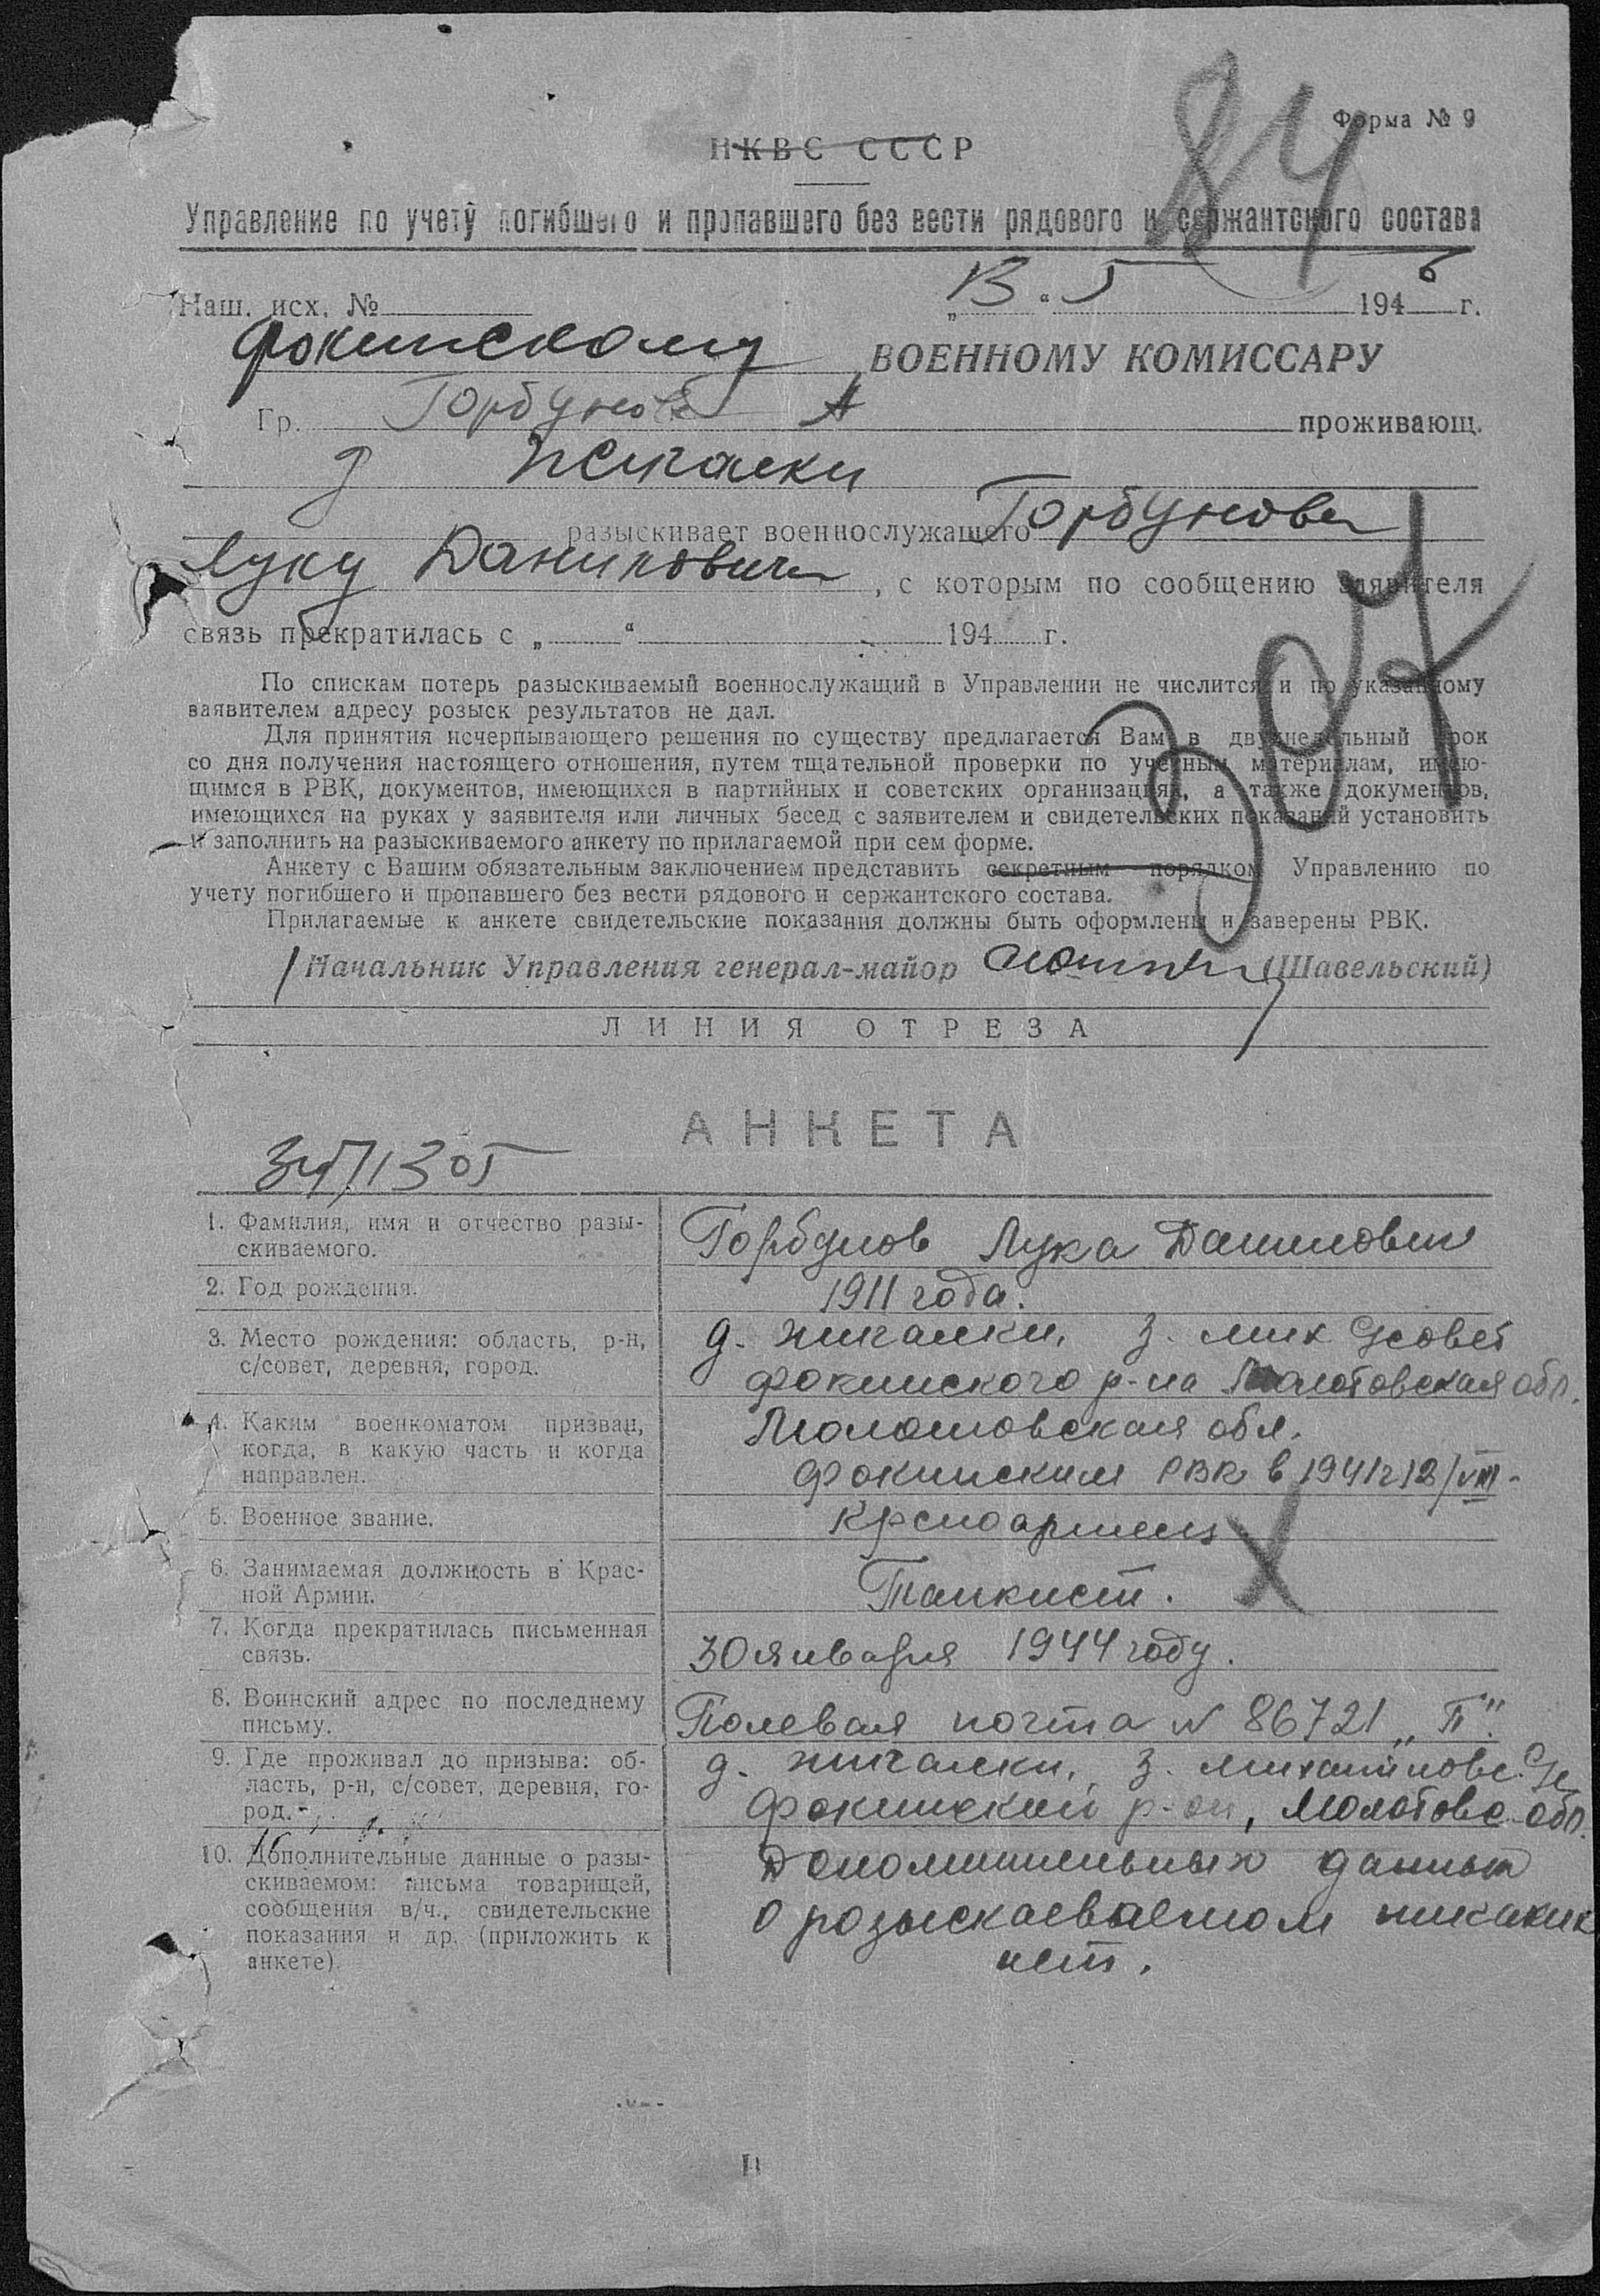 84
Форма № 9
НКВС СССР
Управление по учету погибшего и пропавшего без вести рядового и сержантского состава
Наш. исх. № „13“ 5 1946 г.
Фокинскому ВОЕННОМУ КОМИССАРУ
Гр. Горбунова А проживающ.
д Жигалки
разыскивает военнослужащего Горбунова
Луку Данилович , с которым по сообщению заявителя
связь прекратилась с „ “ 194 г.
397
По спискам потерь разыскиваемый военнослужащий в Управлении не числится и по указанному
заявителем адресу розыск результатов не дал.
Для принятия исчерпывающего решения по существу предлагается Вам в двухнедельный срок
со дня получения настоящего отношения, путем тщательной проверки по учетным материалам, имею-
щимся в РВК, документов, имеющихся в партийных и советских организациях, а также документов,
имеющихся на руках у заявителя или личных бесед с заявителем и свидетельских показаний установить
и заполнить на разыскиваемого анкету по прилагаемой при сем форме.
Анкету с Вашим обязательным заключением представить секретным порядком Управлению по
учету погибшего и пропавшего без вести рядового и сержантского состава.
Прилагаемые к анкете свидетельские показания должны быть оформлены и заверены РВК.
Начальник Управления генерал-майор (Шавельский)
ЛИНИЯ ОТРЕЗА
АНКЕТА
1. Фамилия, имя и отчество разы-
скиваемого.
Горбунов Лука Данилович
2. Год рождения.
1911 года.
3. Место рождения: область, р-н,
с/совет, деревня, город.
д. Жигалки, З. Мих С/совет
Фокинского р-на Молотовская обл.
4. Каким военкоматом призван,
когда, в какую часть и когда
направлен.
Молотовская обл.
Фокинским РВК в 1941г 12/VIII-
5. Военное звание.
Крсноармеец
6. Занимаемая должность в Крас-
ной Армии.
Танкист.
7. Когда прекратилась письменная
связь.
30 января 1944 году.
8. Воинский адрес по последнему
письму.
Полевая почта № 86721 „П“.
9. Где проживал до призыва: об-
ласть, р-н, с/совет, деревня, го-
род.
д. Жигалки, З. Михайловс. С/с
Фокинский р-он, Молотовс. обл.
10. Дополнительные данные о разы-
скиваемом: письма товарищей,
сообщения в/ч., свидетельские
показания и др. (приложить к
анкете)
Дополнительных данных
о розыскаеваемом никаких
нет.